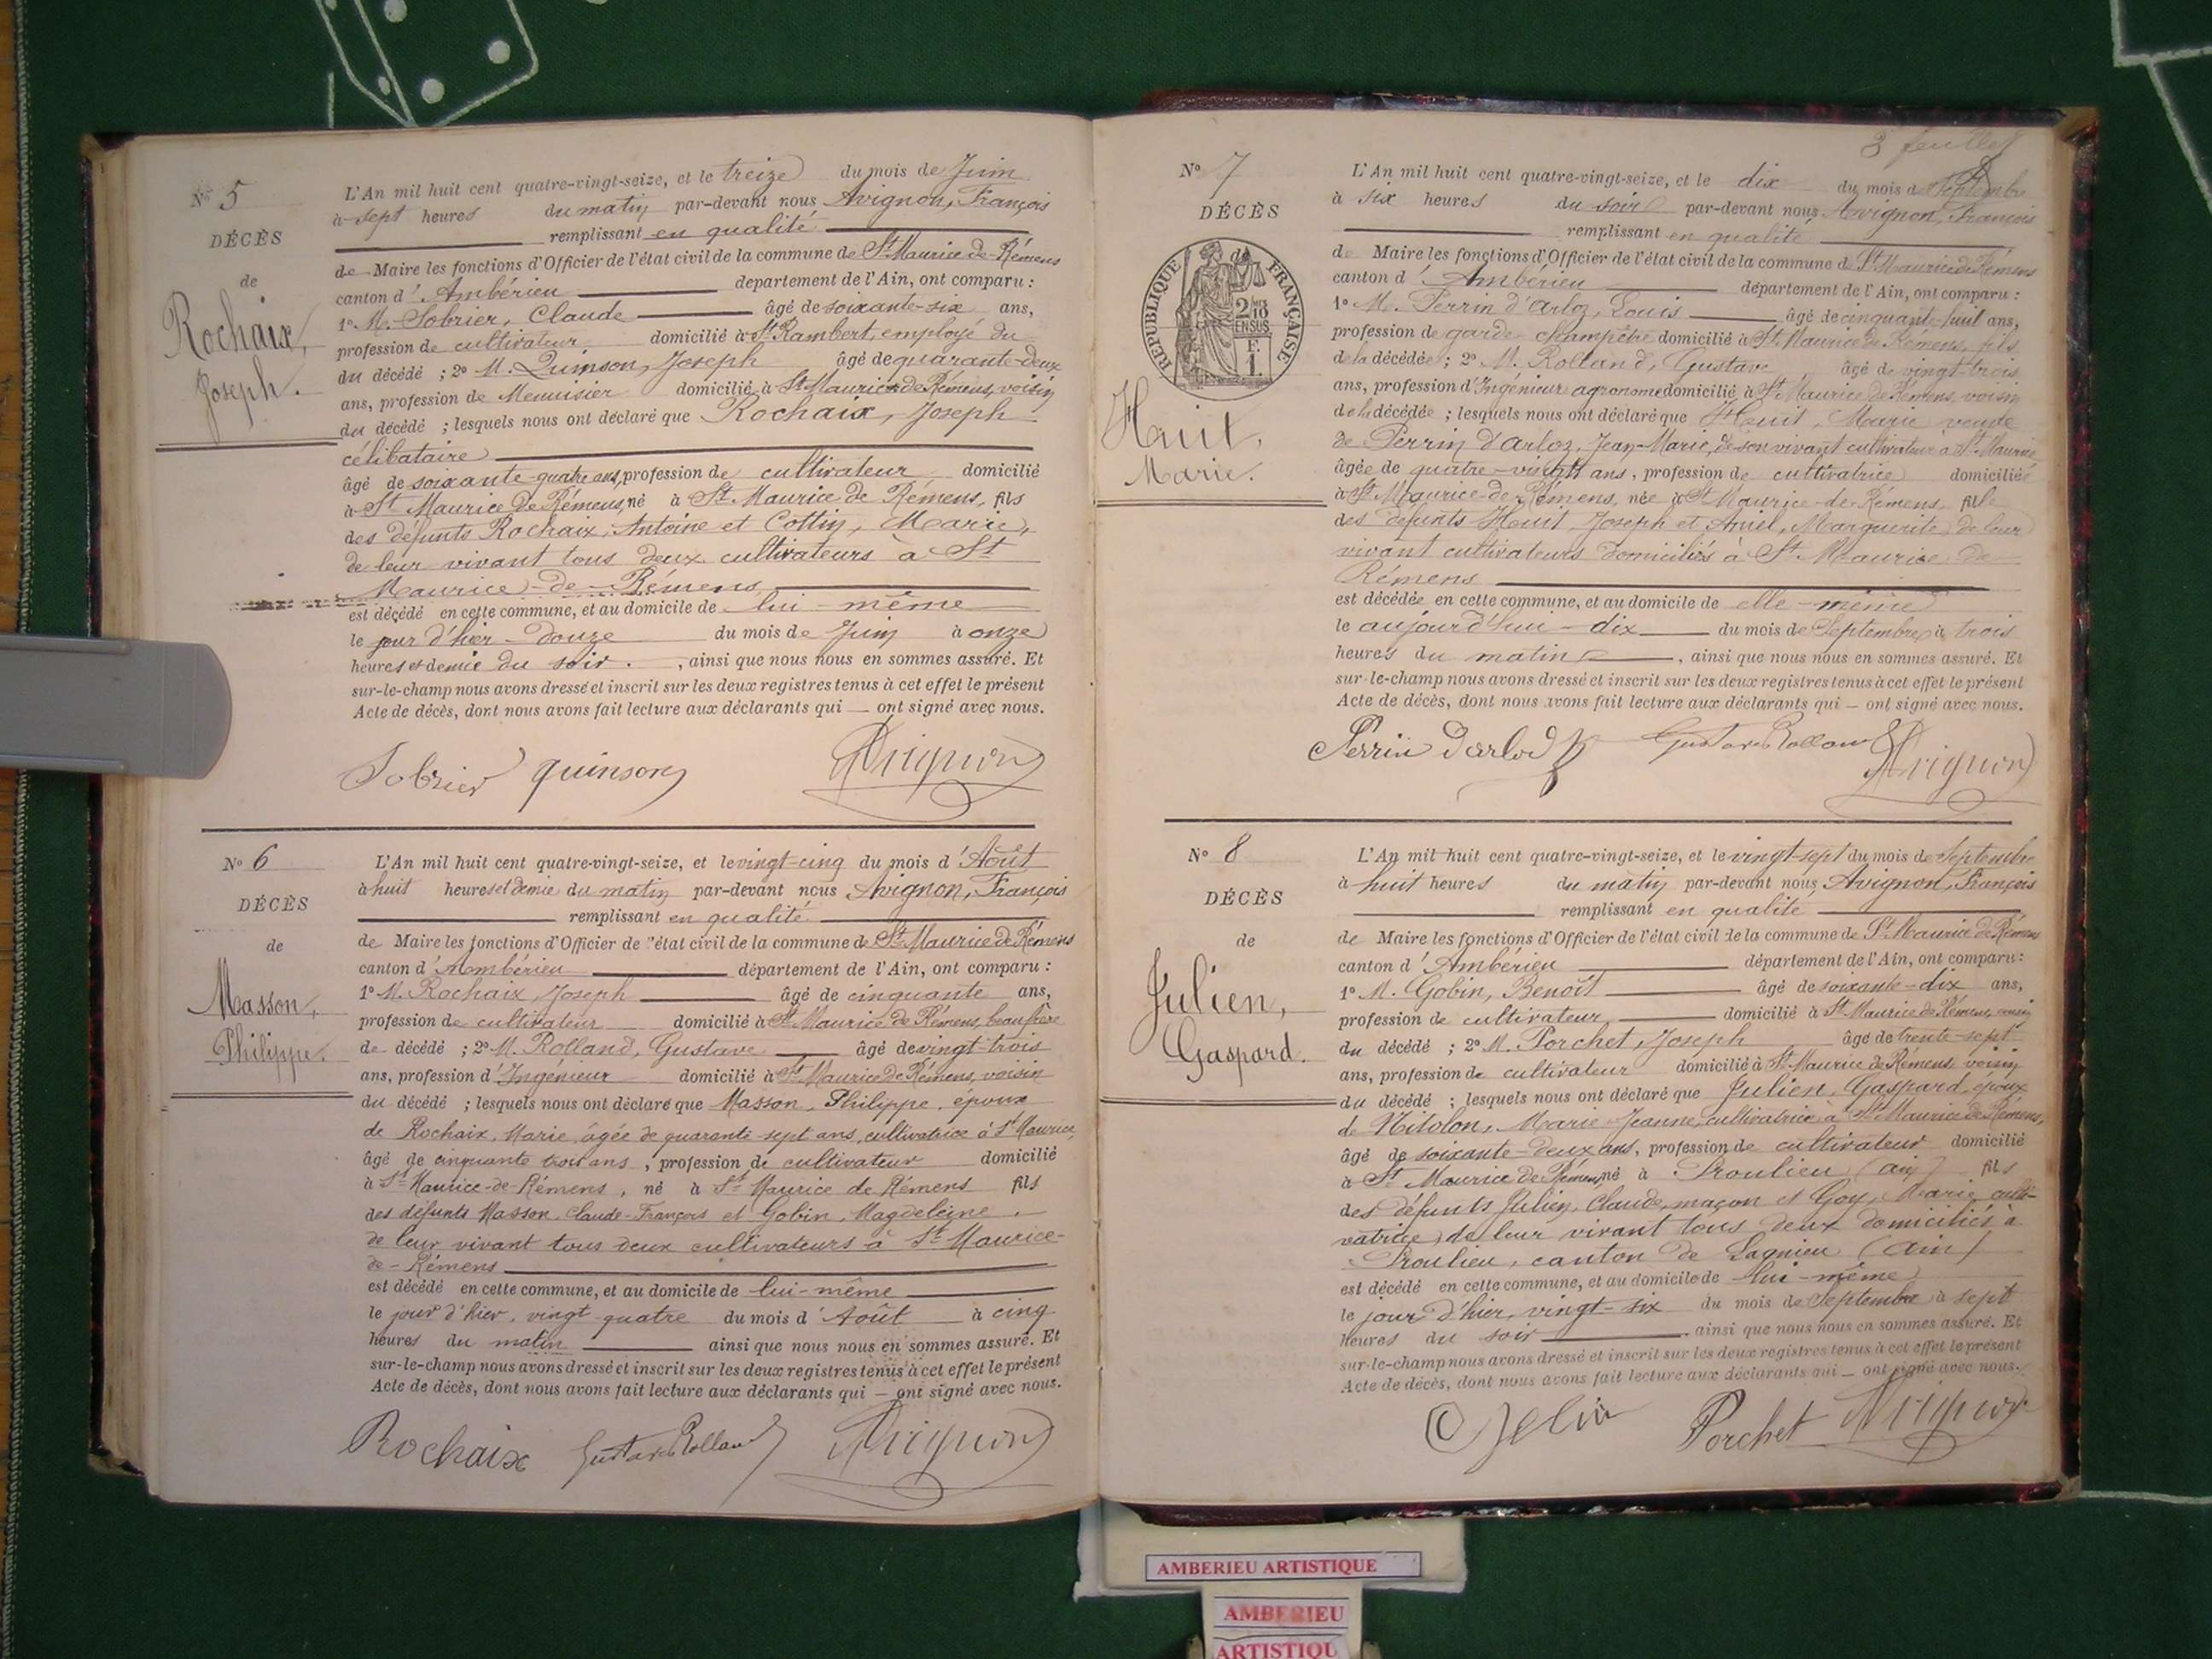 Nº 5
DÉCÈS
de
Rochaix,
Joseph.
L'An mil huit cent quatre-vingt-seize, et le treize du mois de Juin
à sept heures du matin par-devant nous Avignon, François
remplissant en qualité
de Maire les fonctions d'Officier de l'état civil de la commune de St Maurice-de-Rémens
canton d' Ambérieu département de l'Ain, ont comparu :
1º M. Sobrier, Claude âgé de soixante-six ans,
profession de cultivateur domicilié à St Rambert, employé du
du décédé ; 2º M. Quinson, Joseph âgé de quarante-deux
ans, profession de Menuisier domicilié à St Maurice de Rémens, voisin
du décédé ; lesquels nous ont déclaré que Rochaix, Joseph
célibataire
âgé de soixante-quatre ans, profession de cultivateur domicilié
à St Maurice de Rémens, né à St Maurice de Rémens, fils
des défunts Rochaix, Antoine et Cottin, Marie,
de leur vivant tous deux cultivateurs à St
Maurice-de-Rémens
est décédé en cette commune, et au domicile de lui-même
le jour d'hier douze du mois de Juin à onze
heures et demie du soir. , ainsi que nous nous en sommes assuré. Et
sur-le-champ nous avons dressé et inscrit sur les deux registres tenus à cet effet le présent
Acte de décès, dont nous avons fait lecture aux déclarants qui — ont signé avec nous.
Sobrier quinson Avignon
Nº 6
DÉCÈS
de
Masson,
Philippe.
L'An mil huit cent quatre-vingt-seize, et le vingt-cinq du mois d' Août
à huit heures et demie du matin par-devant nous Avignon, François
remplissant en qualité
de Maire les fonctions d'Officier de l'état civil de la commune de St Maurice de Rémens
canton d' Ambérieu département de l'Ain, ont comparu :
1º M. Rochaix, Joseph âgé de cinquante ans,
profession de cultivateur domicilié à St Maurice de Rémens, beau frère
de décédé ; 2º M. Rolland, Gustave âgé de vingt-trois
ans, profession d' Ingénieur domicilié à St Maurice de Rémens, voisin
du décédé ; lesquels nous ont déclaré que Masson, Philippe, époux
de Rochaix, Marie, âgée de quarante-sept ans, cultivatrice à St Maurice,
âgé de cinquante trois ans, profession de cultivateur domicilié
à St Maurice-de-Rémens, né à St Maurice de Rémens fils
des défunts Masson, Claude-François et Gobin, Magdeleine,
de leur vivant tous deux cultivateurs à St Maurice-
de-Rémens
est décédé en cette commune, et au domicile de lui-même
le jour d'hier, vingt quatre du mois d' Août à cinq
heures du matin ainsi que nous nous en sommes assuré. Et
sur-le-champ nous avons dressé et inscrit sur les deux registres tenus à cet effet le présent
Acte de décès, dont nous avons fait lecture aux déclarants qui — ont signé avec nous.
Rochaix Gustave Rolland Avignon
3 feuillet
Nº 7
DÉCÈS
RÉPUBLIQUE FRANÇAISE
2/10
EN SUS
F.
1.
Huit,
Marie.
L'An mil huit cent quatre-vingt-seize, et le dix du mois de Septembre
à six heures du soir par-devant nous Avignon, François
remplissant en qualité
de Maire les fonctions d'Officier de l'état civil de la commune de St Maurice de Rémens
canton d' Ambérieu département de l'Ain, ont comparu :
1º M. Perrin d'arloz, Louis âgé de cinquante-huit ans,
profession de garde champêtre domicilié à St Maurice de Rémens, fils
de la décédée ; 2º M. Rolland, Gustave âgé de vingt-trois
ans, profession d' Ingénieur agronome domicilié à St Maurice de Rémens, voisin
de la décédée ; lesquels nous ont déclaré que Huit, Marie veuve
de Perrin d'arloz, Jean-Marie, de son vivant cultivateur à St Maurice
âgée de quatre-vingts ans, profession de cultivatrice domiciliée
à St Maurice-de-Rémens, née à St Maurice-de-Rémens, fille
des défunts Huit, Joseph et Amiel, Marguerite, de leur
vivant cultivateurs domiciliés à St Maurice de
Rémens
est décédée en cette commune, et au domicile de elle-même
le aujourd'hui dix du mois de Septembre à trois
heures du matin , ainsi que nous nous en sommes assuré. Et
sur-le-champ nous avons dressé et inscrit sur les deux registres tenus à cet effet le présent
Acte de décès, dont nous avons fait lecture aux déclarants qui — ont signé avec nous.
Perrin Darlod Gustave Rolland Avignon
Nº 8
DÉCÈS
de
Julien,
Gaspard.
L'An mil huit cent quatre-vingt-seize, et le vingt-sept du mois de Septembre
à huit heures du matin par-devant nous Avignon, François
remplissant en qualité
de Maire les fonctions d'Officier de l'état civil de la commune de St Maurice de Rémens
canton d' Ambérieu département de l'Ain, ont comparu :
1º M. Gobin, Benoît âgé de soixante-dix ans,
profession de cultivateur domicilié à St Maurice de Rémens, voisin
du décédé ; 2º M. Porchet, Joseph âgé de trente-sept
ans, profession de cultivateur domicilié à St Maurice de Rémens, voisin
du décédé ; lesquels nous ont déclaré que Julien, Gaspard, époux
de Marie-Jeanne, cultivatrice à St Maurice de Rémens,
âgé de soixante-deux ans, profession de cultivateur domicilié
à St Maurice de Rémens, né à Proulieu (Ain) fils
des défunts Julien, Claude, maçon et Goy, Marie, culti-
vatrice, de leur vivant tous deux domiciliés à
Proulieu, canton de Lagnieu (Ain)
est décédé en cette commune, et au domicile de lui-même
le jour d'hier, vingt-six du mois de Septembre à sept
heures du soir , ainsi que nous nous en sommes assuré. Et
sur-le-champ nous avons dressé et inscrit sur les deux registres tenus à cet effet le présent
Acte de décès, dont nous avons fait lecture aux déclarants qui — ont signé avec nous.
Porchet Avignon
AMBERIEU ARTISTIQUE
AMBERIEU
ARTISTIQU